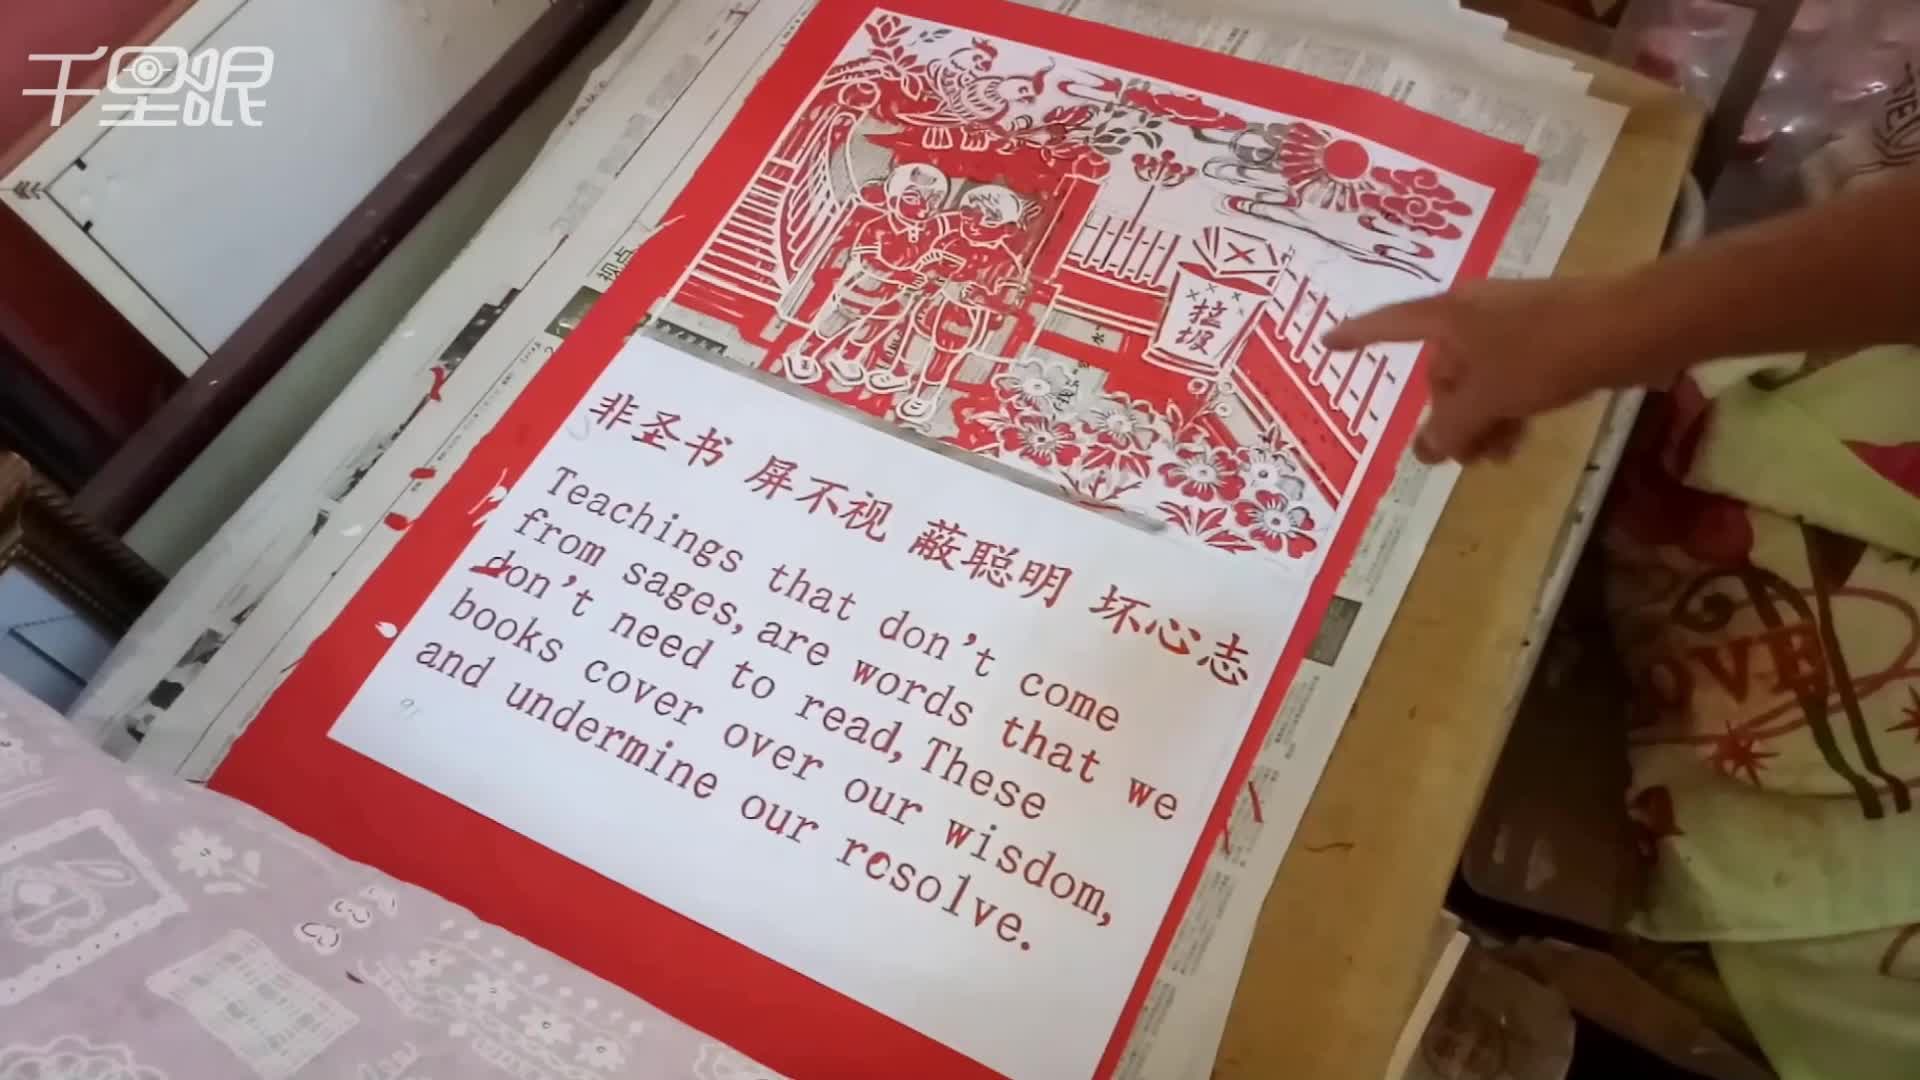 千里眼
垃圾
视点
非圣书 屏不视 蔽聪明 坏心志
Teachings that don't come
from sages, are words that we
don't need to read, These
books cover over our wisdom,
and undermine our resolve.
LOVE